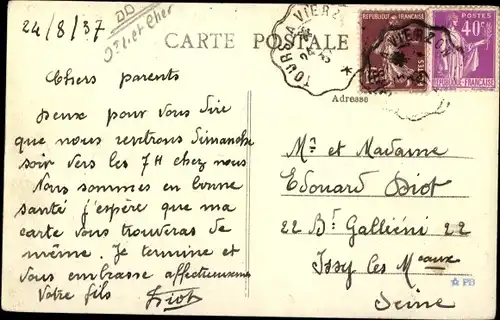 24/8/37
Loir et Cher
CARTE POSTALE
TOURS A VIERZON
RÉPUBLIQUE FRANÇAISE
POSTES
40c
RÉPUBLIQUE FRANÇAISE
Adresse
Chers parents
deux pour vous dire
que nous rentrons Dimanche
soir vers les 7H chez nous
Nous sommes en bonne
santé j'espère que ma
carte vous trouveras de
même. Je termine et
vous embrasse affectueusement
Votre fils Diot
Mr et Madame
Edouard Diot
22 Bd Galliéni 22
Issy les Meaux
Seine
PB